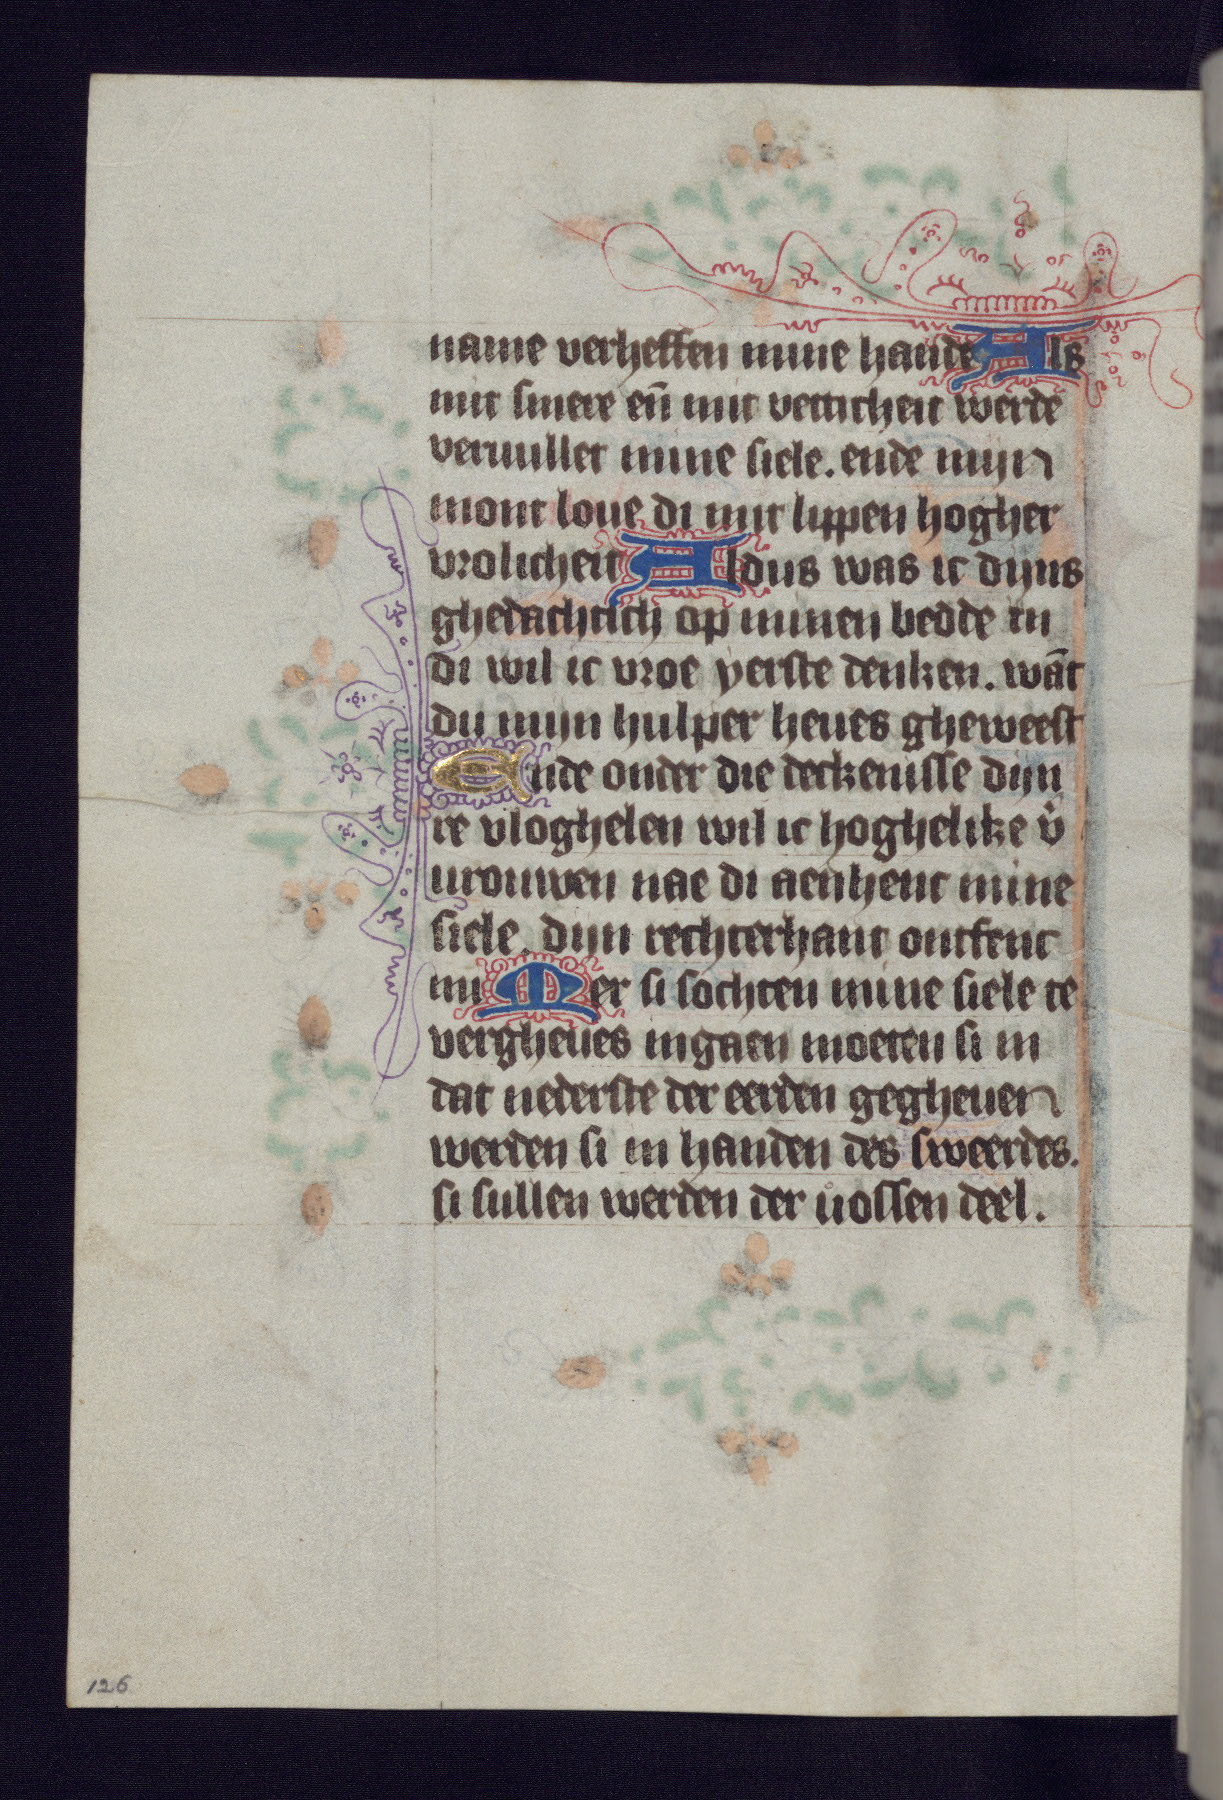 name verheffen mine hande Als
mit smere en̄ mit vetticheit werde
veruullet mine siele. ende mijn
mont loue di mit lippen hogher
vrolicheit Aldus was ic dijns
ghedachtich op minen bedde in
di wil ic vroe yerste denken. wāt
du mijn hulper heues gheweest
Ende onder die deckenisse dijn
re vloghelen wil ic hoghelike v̉
urouwen nae di aenhenc mine
siele. dijn rechterhant ontfenc
mi Mer si sochten mine siele te
vergheues ingaen moeten si in
dat nederste der eerden gegheuen
werden si in handen des sweerdes.
si sullen werden der uossen deel.
126